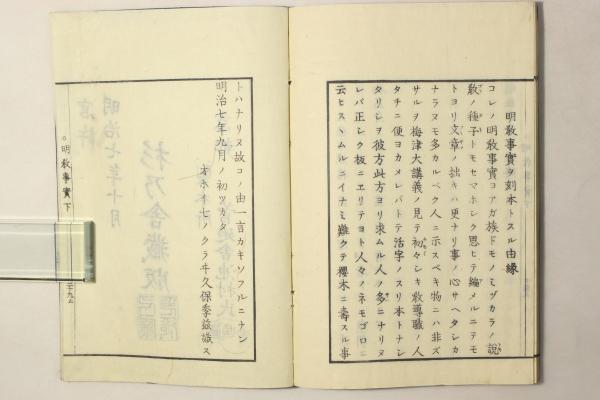 明教事實ヲ刻本トスル由縁
コレノ明教事實コアガ族ドモノミヅカラノ説
教ノ種子トモセマホシク思ヒテ編メルニテモ
トヨリ文章ノ拙キハ更ナリ事ノ心サヘタシカ
ナラヌモ多カルベク人ニ示スベキ物ニハ非ズ
サルヲ梅津大講義ノ見テ初々シキ教導職ノ人
タチニ便ヨカメレバトテ活字ノスリ本トナシ
タリシヲ彼方此方ヨリ求ムル人ノ多ニナリヌ
レバ正シク板ニヱリテヨト人々ノネモゴロニ
云ヒスヽムルニイナミ難クテ櫻木ニ壽スル事
トハナリヌ故コノ由一言カキソフルニナン
明治七年九月ノ初ツカタ
オホキ七ノクラヰ久保季茲識ス
明教事實下
明治七年十月
官許
杉乃舎藏版